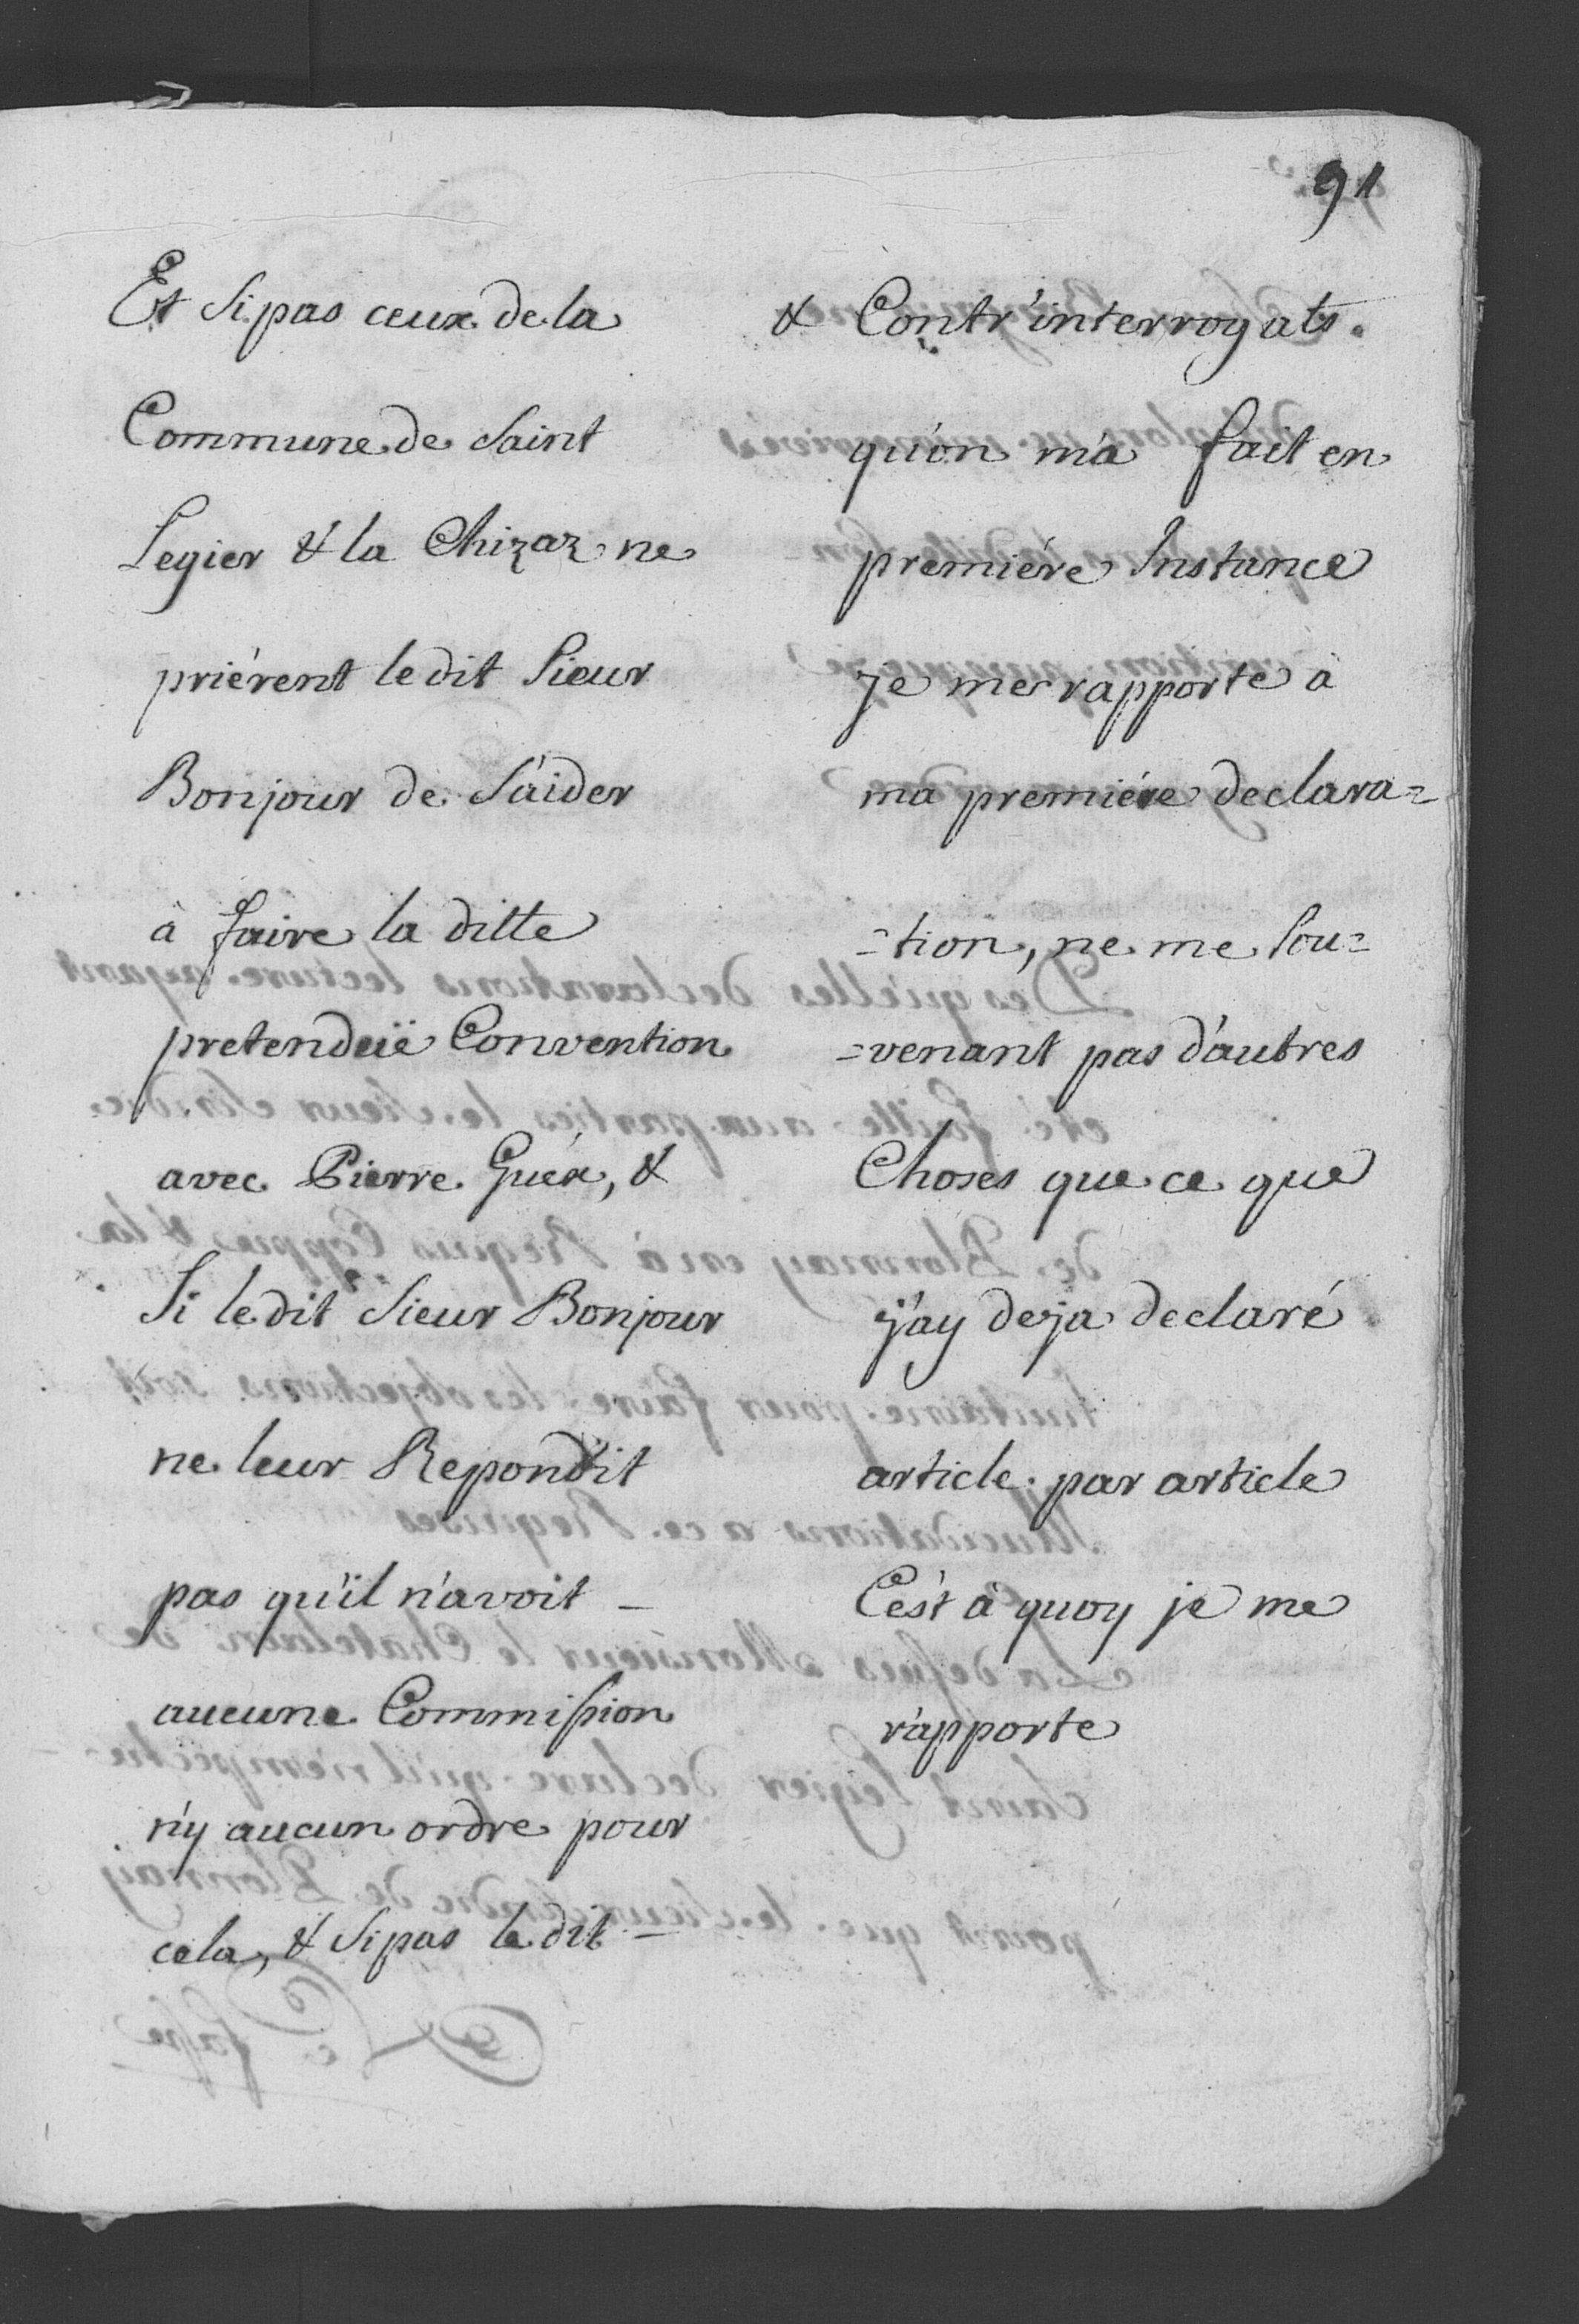 91
Et Si pas ceux de la
Commune de Saint
Legier & la Chizaz ne
priérent le dit Sieur
Bonjour de S'aider
à faire la ditte
pretendüe Convention
avec Pierre Guéx, &
Si le dit Sieur Bonjour
ne leur Repondit
pas qu'il n'avoit _
aucune Commission
n'y aucun ordre pour
cela, & Si pas le dit _
& Contr'interrogats.
qu'on m'a fait en
premiére Instance
je me rapporte à
ma premiére declara=
=tion, ne me Sou=
=venant pas d'autres
Choses que ce que
j'ay deja declaré
article par article
C'est à quoy je me
rapporte